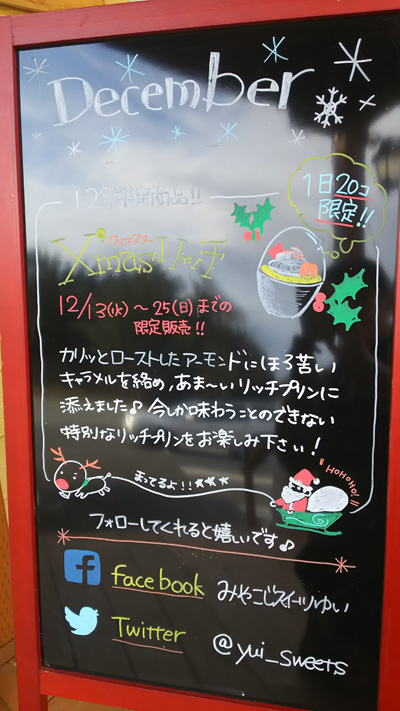 December
12月限定商品!!
1日20コ
限定!!
クリスマス
Xmasリッチ
12/13(水)〜25(日)までの
限定販売!!
カリッとローストしたアーモンドにほろ苦い
キャラメルを絡め,あま〜いリッチプリンに
添えました♪今しか味わうことのできない
特別なリッチプリンをお楽しみ下さい!
まってるよ!!★★★
HOHOHO!
フォローしてくれると嬉しいです♪
facebook みやこじスイーツゆい
Twitter @yui_sweets